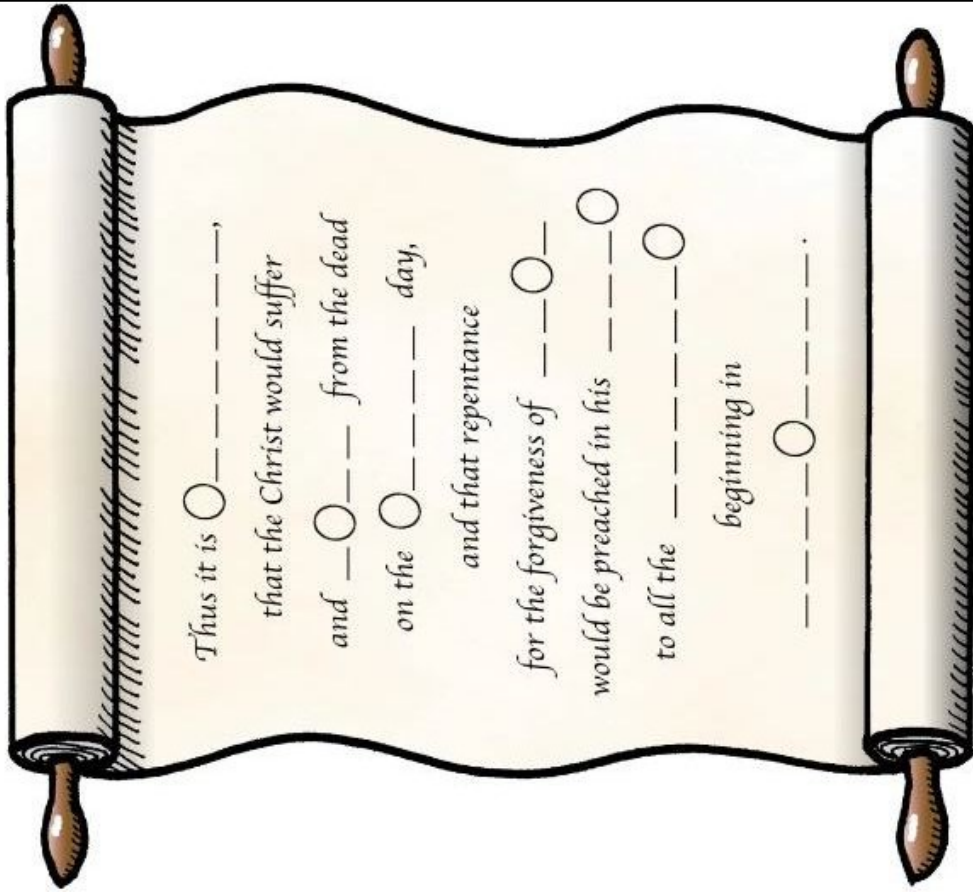 Thus it is O_ _ _ _ _ _,
that the Christ would suffer
and _O_ _ from the dead
on the O_ _ _ _ day,
and that repentance
for the forgiveness of _ _O_
would be preached in his _ _ _O
to all the _ _ _ _ _ _O
beginning in
_ _ _ _O_ _ _ _.